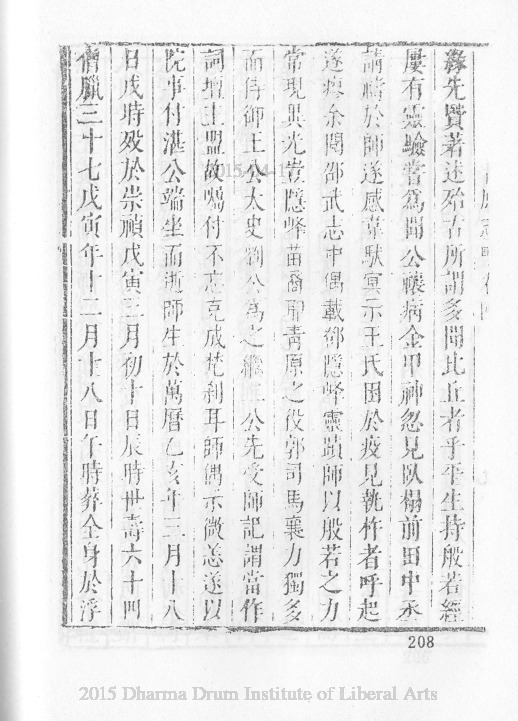 彝先贒著述殆古所謂多聞比丘者乎平生持般若經
屢有靈驗嘗爲聞公禳病金甲神忽見臥榻前田中丞
請禱於師遂感韋馱冥示王氏困於疫見執杵者呼起
遂瘳余閱邵武志中偶載鄧隱峰靈蹟師以般若之力
常現異光豈隱峰苗裔耶靑原之役郭司馬襄力獨多
而侍御王公太史劉公爲之繼王公先受師記謂當作
詞壇主盟故囑付不忘克成梵刹耳師偶示微恙遂以
院事付湛公端坐而逝師生於萬曆乙亥年三月十八
日戌時歿於崇禎戊寅三月初十日辰時世壽六十四
僧臘三十七戊寅年十二月十八日午時葬全身於浮
208
2015 Dharma Drum Institute of Liberal Arts